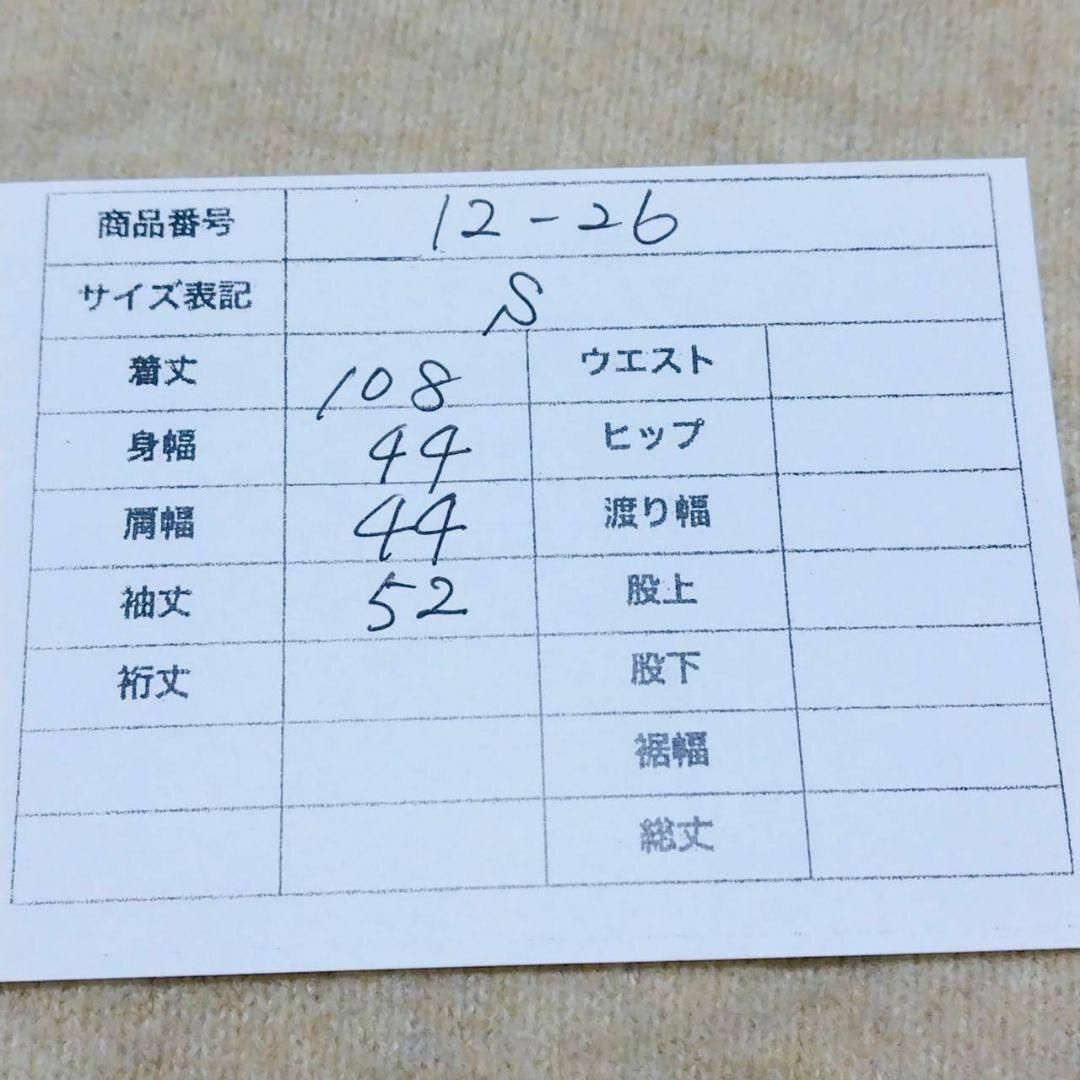 商品番号 12-26
サイズ表記 S
着丈 108 ウエスト
身幅 44 ヒップ
肩幅 44 渡り幅
袖丈 52 股上
裄丈 股下
裾幅
総丈